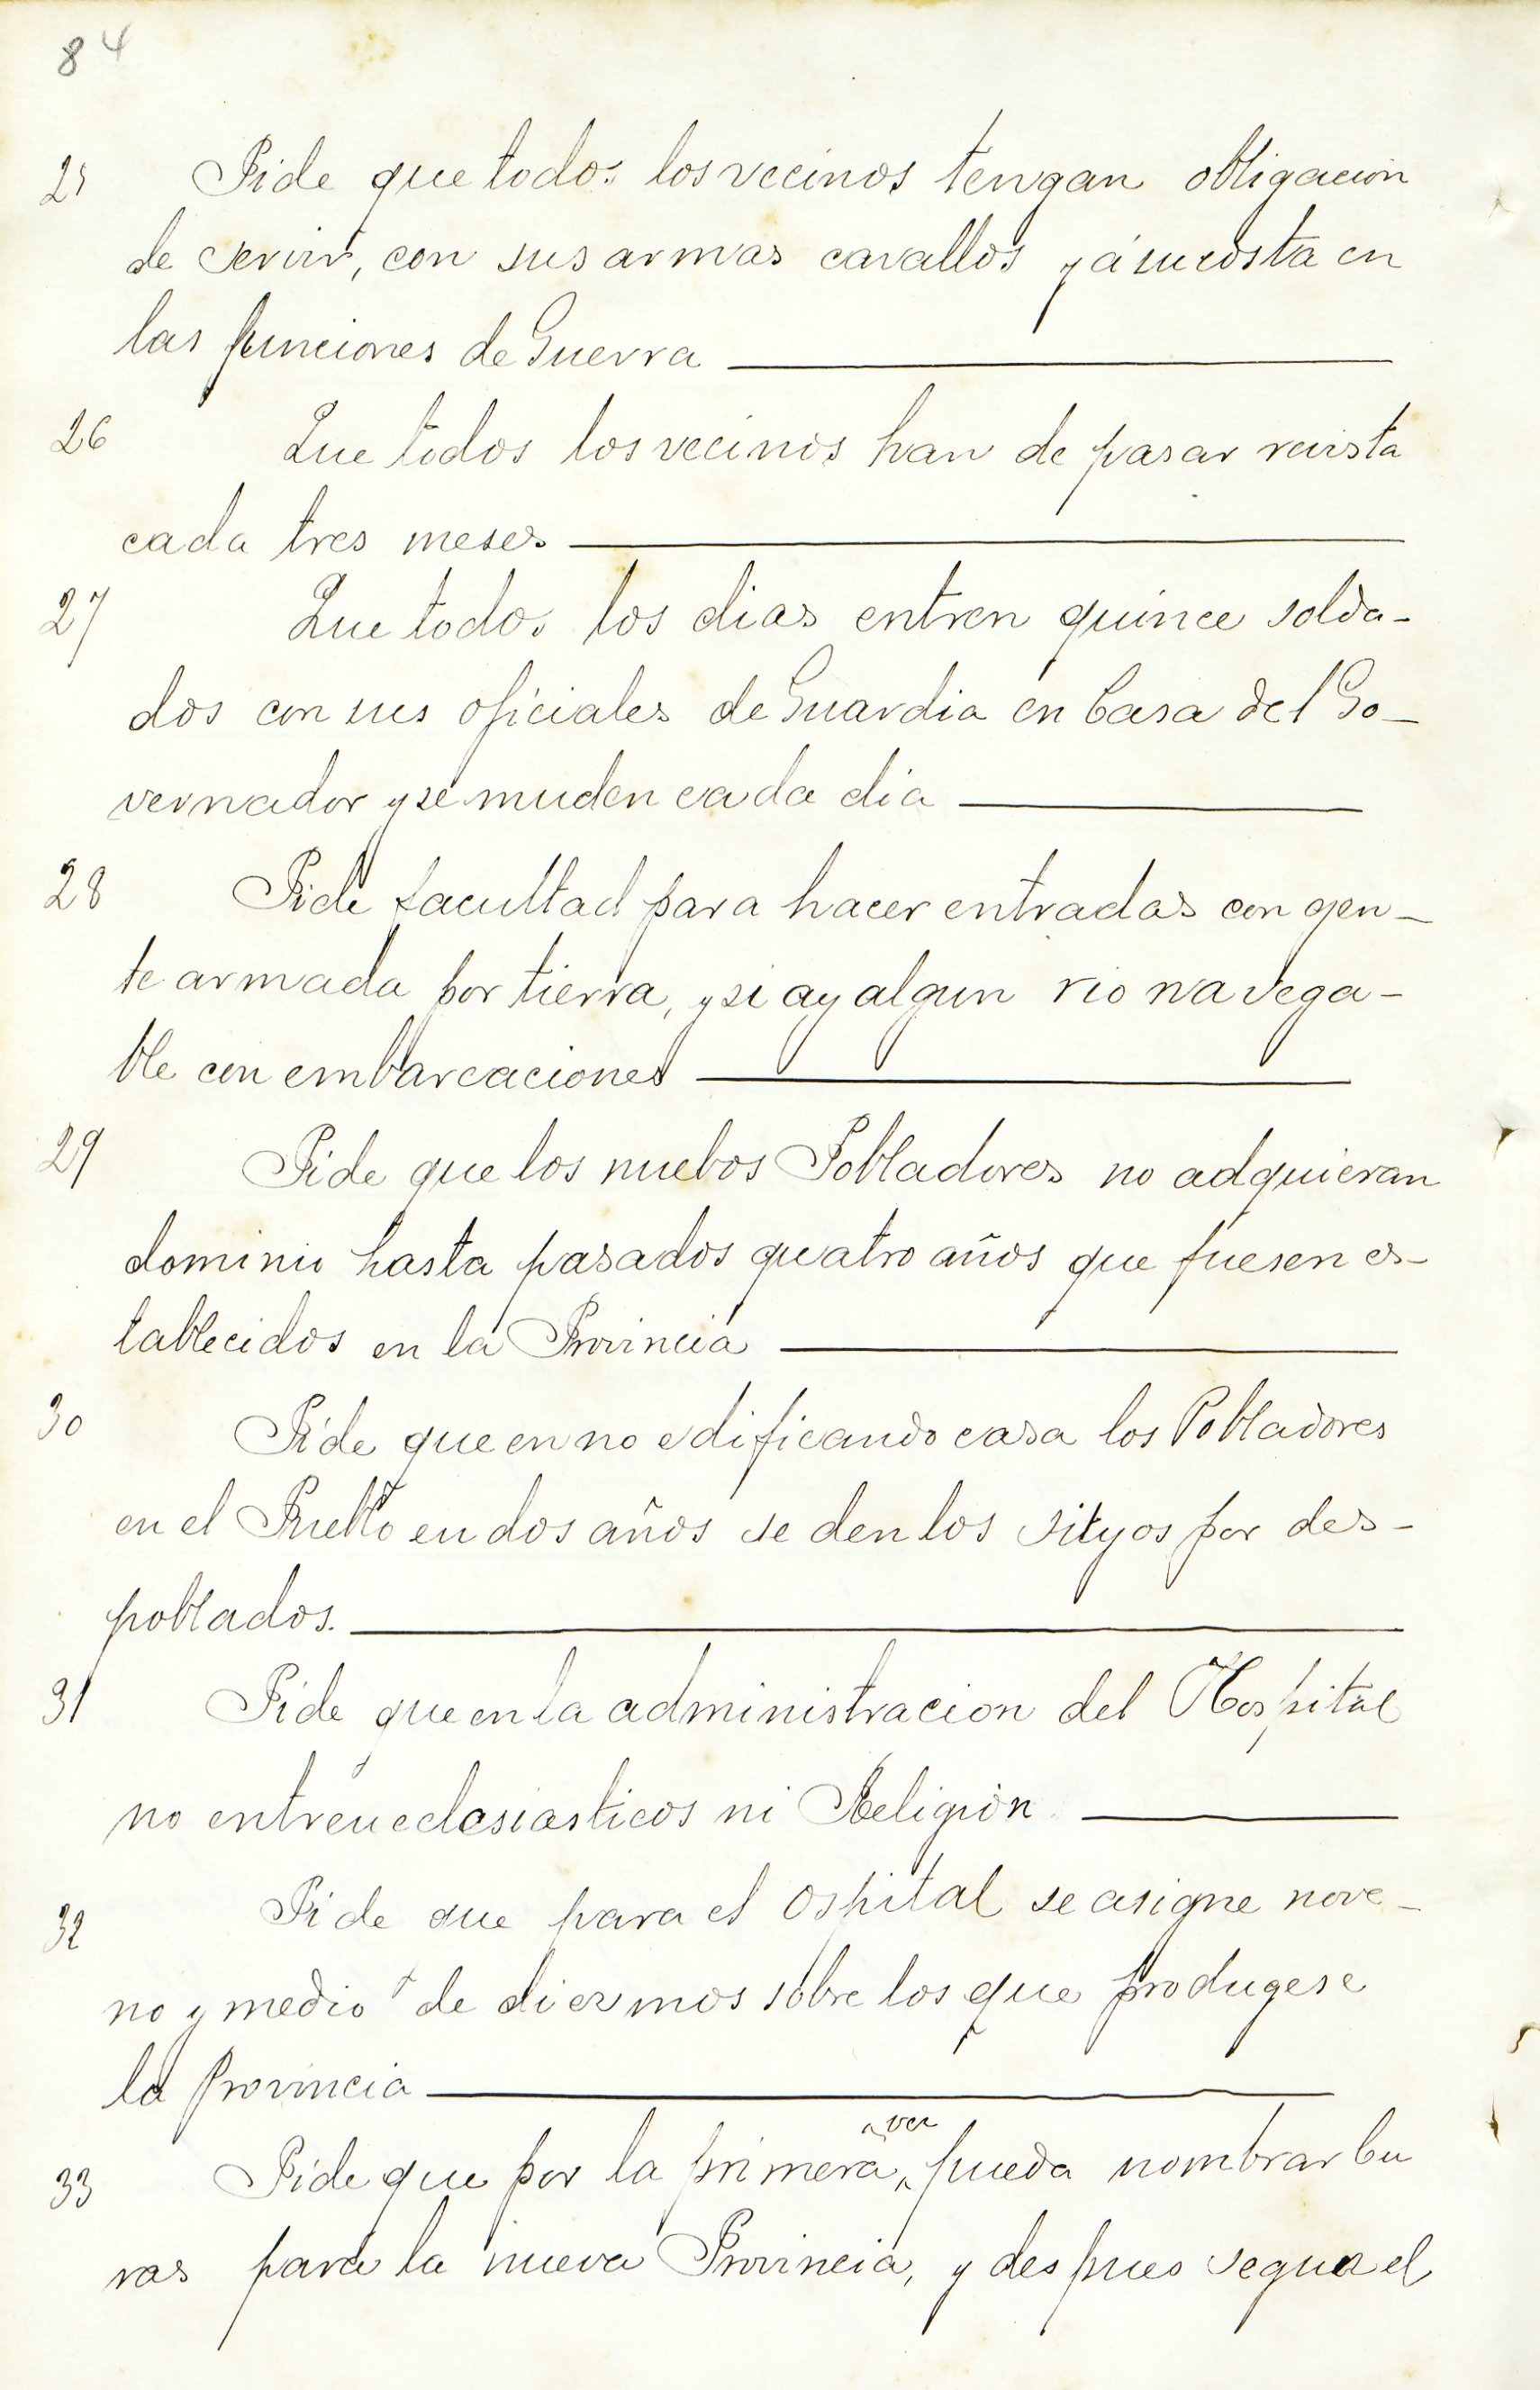 84
25 Pide que todos los vecinos tengan obligacion
de servir, con sus armas cavallos y á su costa en
las funciones de Guerra
26 Que todos los vecinos han de pasar revista
cada tres meses
27 Que todos los dias entren quince solda-
dos con sus oficiales de Guardia en Casa del Go-
vernador y se muden cada dia
28 Pide facultad para hacer entradas con gen-
te armada por tierra, y si ay algun rio navega-
ble con embarcaciones
29 Pide que los nuebos Pobladores no adquieran
dominio hasta pasados quatro años que fuesen es-
tablecidos en la Provincia
30 Pide que en no edificando casa los Pobladores
en el Pueblo en dos años se den los sityos por des-
poblados.
31 Pide que en la administracion del Hospital
no entren eclesiasticos ni Religion
32 Pide que para el Ospital se asigne nove-
no y medio de diezmos sobre los que produgese
la Provincia
33 Pide que por la primera vez pueda nombrar Cu
ras para la nueva Provincia, y despues segun el